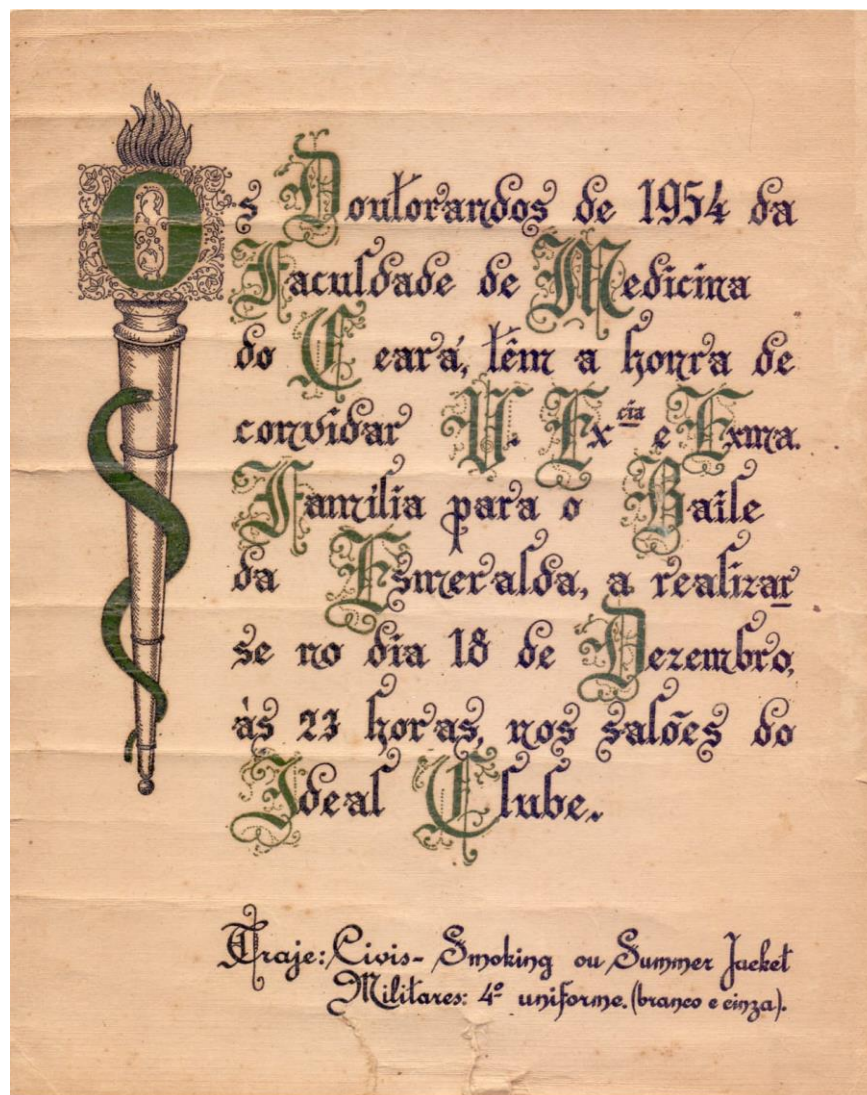 Os Doutorandos de 1954 da
Faculdade de Medicina
do Ceará, têm a honra de
convidar V. Ex.cia e Exma.
Família para o Baile
da Esmeralda, a realizar
se no dia 18 de Dezembro,
às 23 horas, nos salões do
Ideal Clube.
Traje: Civis - Smoking ou Summer Jacket
Militares: 4º uniforme. (branco e cinza).